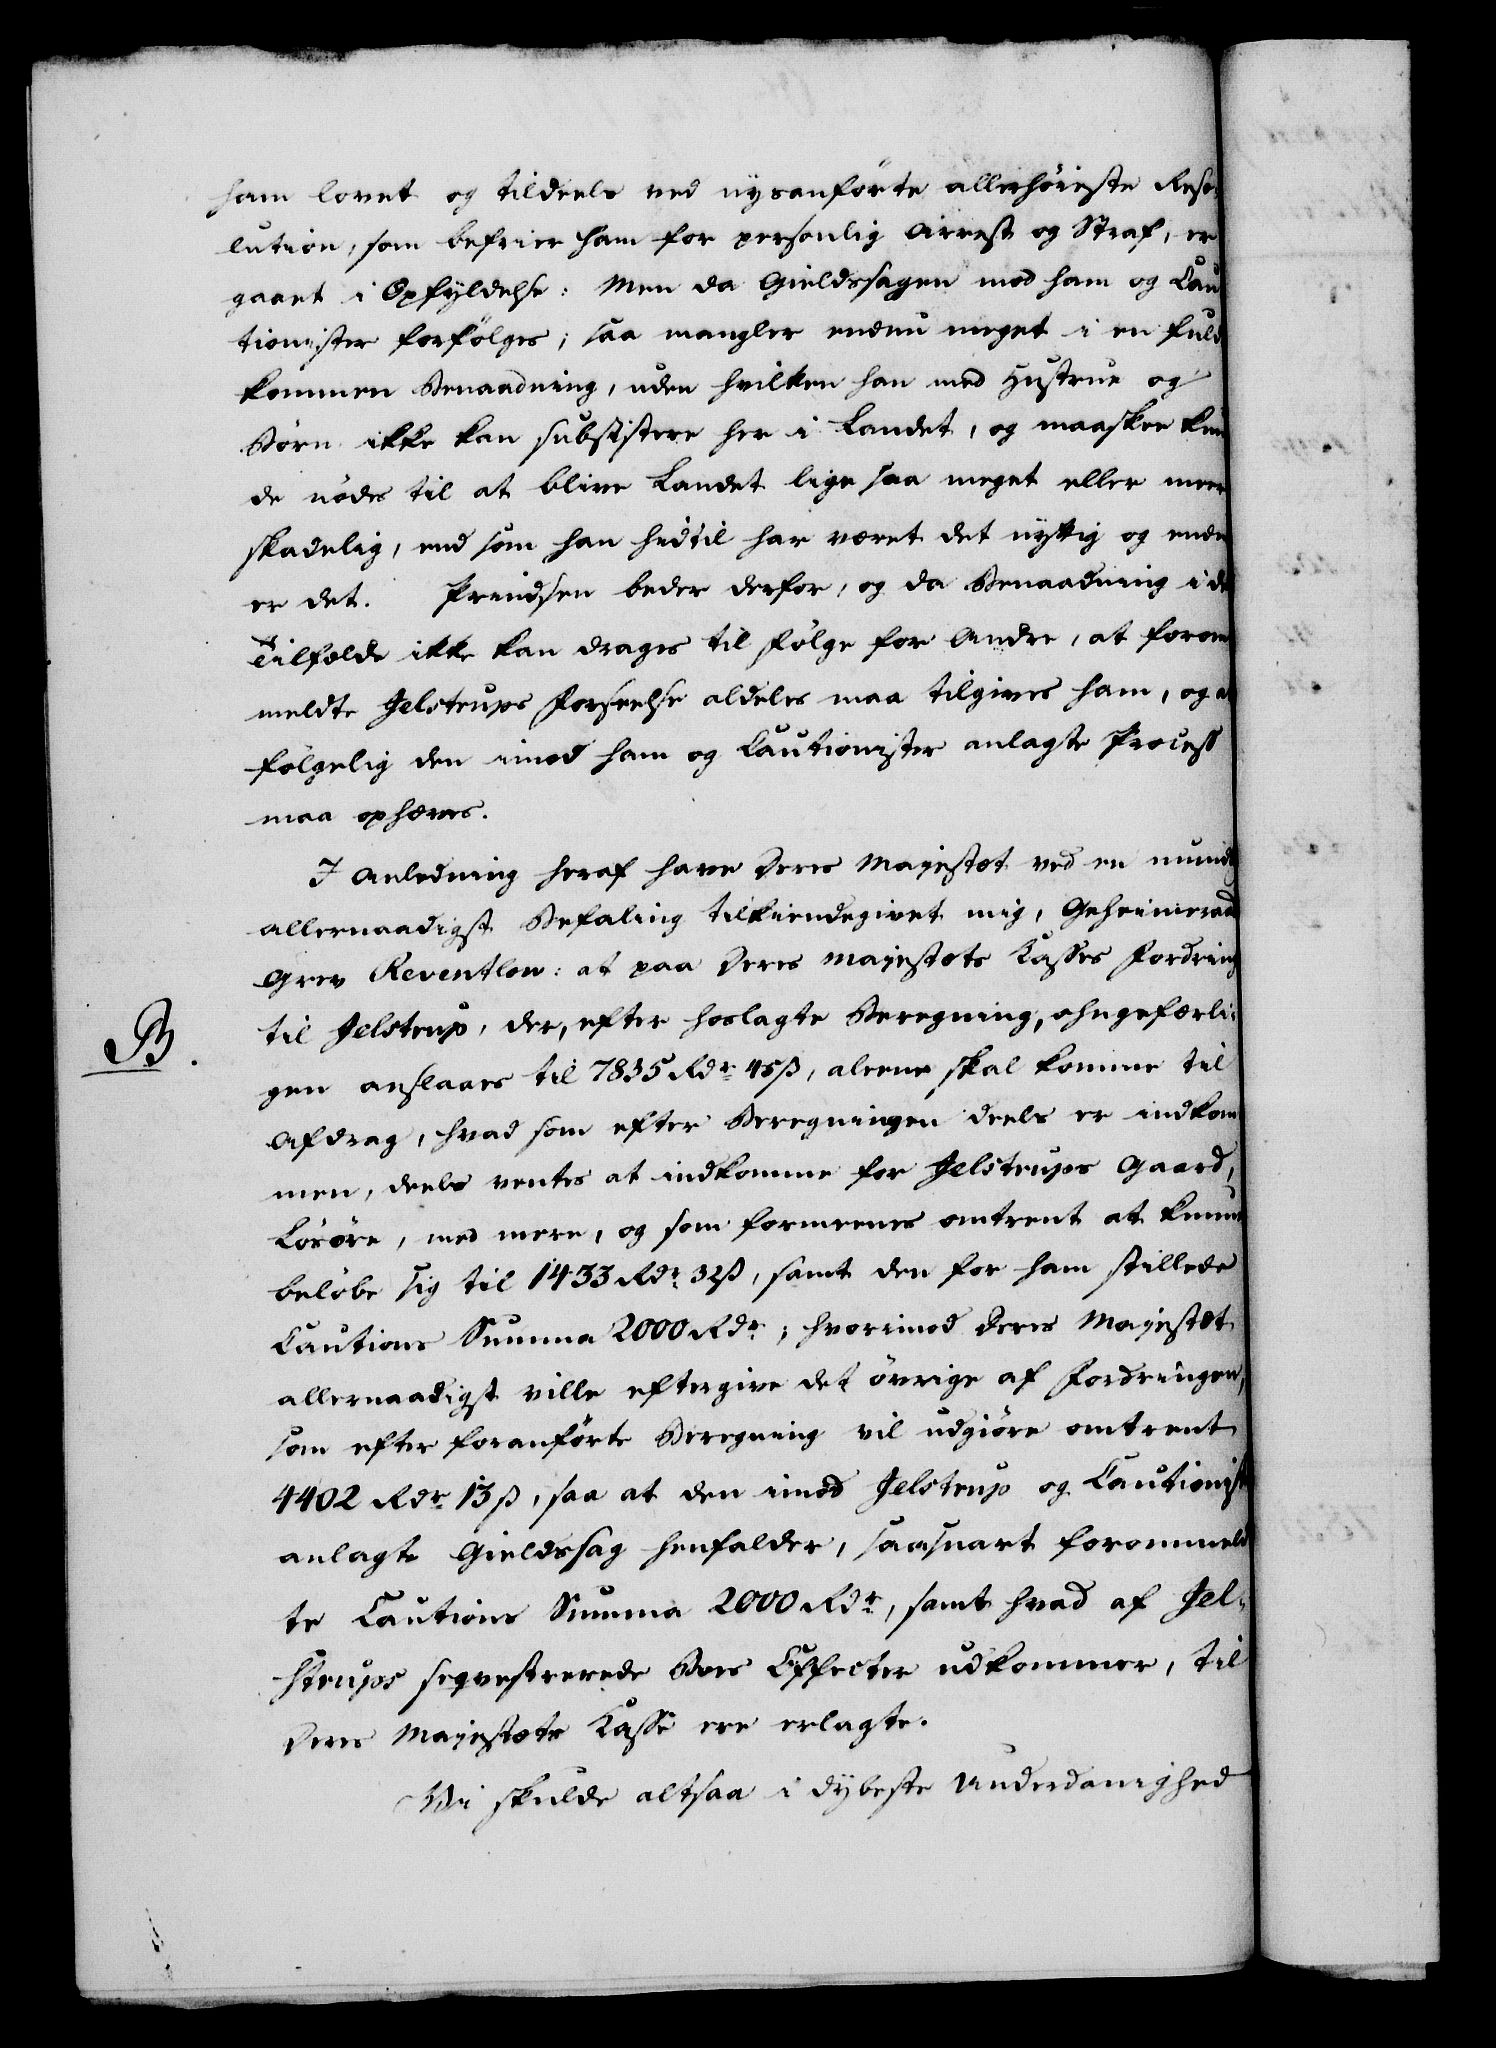 ham lovet og tildeels ved nysanførte allerhöieste Reso-
lution, som befrier ham for personlig Arrest og Straf, er
gaaet i Opfyldelse: Men da Gieldssagen mod ham og Cau
tionister forfölges; saa mangler endnu meget i en fuld
kommen Benaadning, uden hvilken han med Hustrue og
Börn ikke kan subsistere her i Landet, og maaskee kun
de nödes til at blive Landet lige saa meget eller meer
skadelig, end som han hidtil har været det nyttig og endn
er det. Prindsen beder derfor, og da Benaadning i de
Tilfælde ikke kan drages til Fölge for Andre, at forom
meldte Jelstrups Forseelse aldeles maa tilgives ham, og at
fölgelig den imod ham og Cautionister anlagte Process
maa ophæves.
I Anledning heraf have Deres Majestæt ved en mundt
allernaadigst Befaling tilkiendegivet mig, Geheimeraad
Grev Reventlow: at paa Deres Majestæts Kasses Fordring
B. til Jelstrup, der, efter hoslagte Beregning, ohngefærli-
gen anslaaes til 7835 Rdr 45 ß, aleene skal komme til
Afdrag, hvad som efter Beregningen deels er indkom
men, deels ventes at indkomme for Jelstrups Gaard,
Lösöre, med mere, og som formeenes omtrent at kunne
belöbe sig til 1433 Rdr 32 ß, samt den for ham stillede
Cautions Summa 2000 Rdr; hvorimod Deres Majestæt
allernaadigst ville eftergive det övrige af Fordringen,
som efter foranförte Beregning vil udgiöre omtrent
4402 Rdr 13 ß, saa at den imod Jelstrup og Cautionist
anlagte Gieldssag henfalder, saasnart forommeld
te Cautions Summa 2000 Rdr, samt hvad af Jel-
strups seqvestrerede Boes Effecter udkommer, til
Deres Majestæts Kasse ere erlagte.
Vi skulde altsaa i dybeste Underdanighed